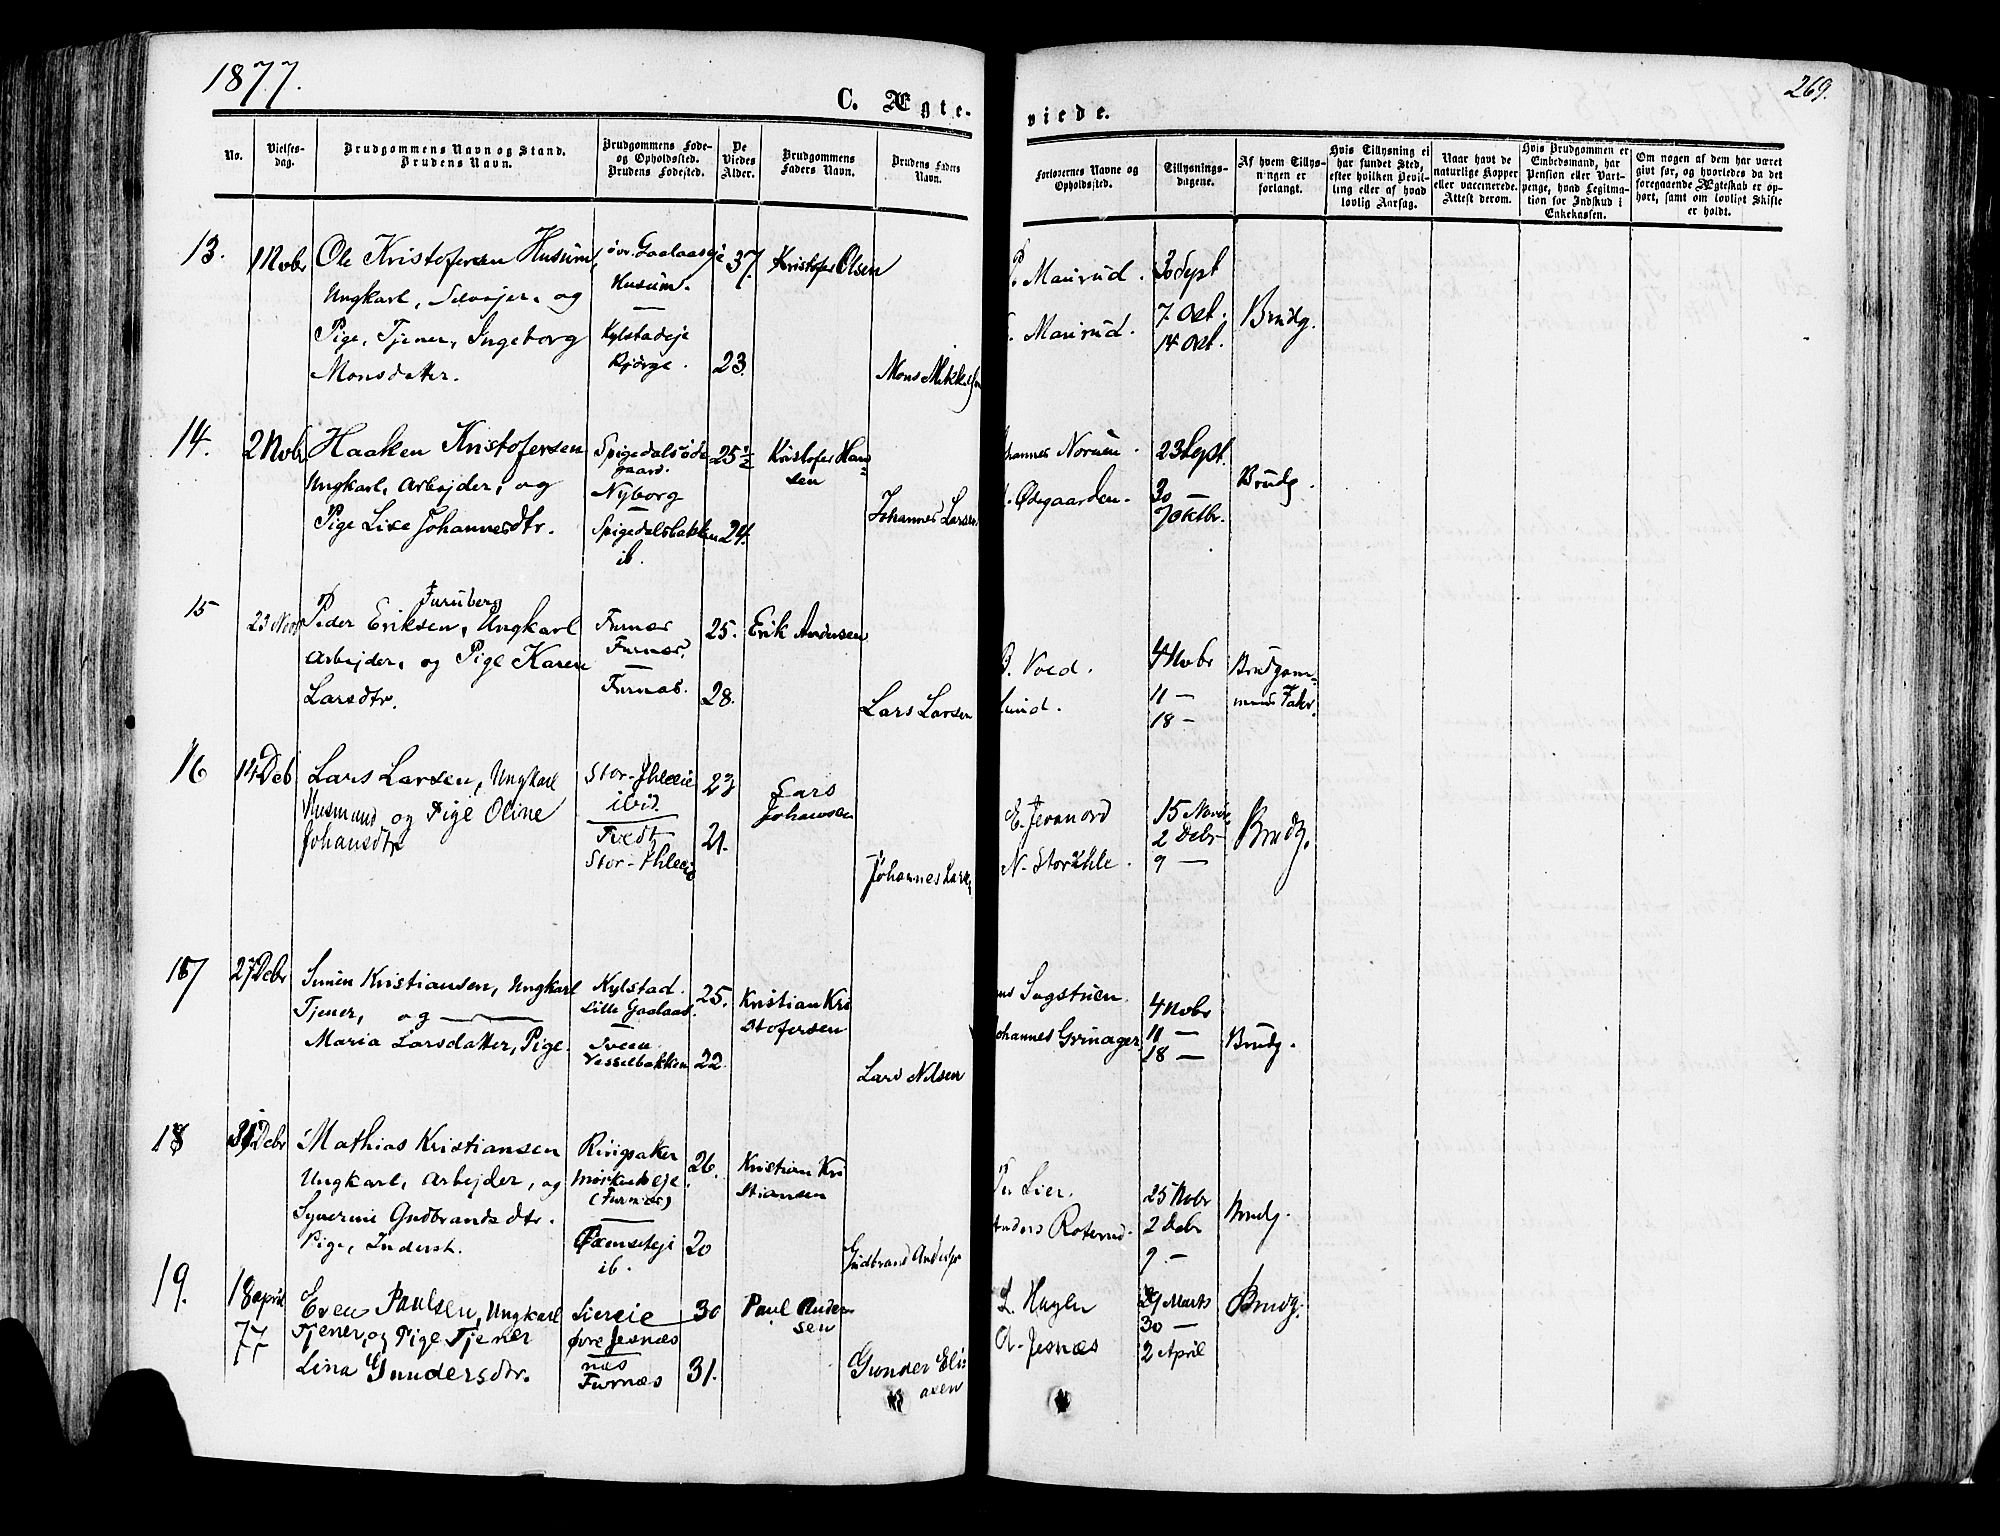 1877.
269.
C. Ægte-
viede.
No.
Vielses-
dag.
Brudgommens Navn og Stand.
Brudens Navn.
Brudgommens Føde-
og Opholdssted.
Brudens Fødested.
De
Viedes
Alder.
Brudgommens
Faders Navn.
Brudens Faders
Navn.
Forlovernes Navne og
Opholdssted.
Tillysnings-
dagene.
Af hvem Tillys-
ningen er
forlangt.
Hvis Tillysning ei
har fundet Sted,
efter hvilken Bevil-
ling eller af hvad
lovlig Aarsag.
Naar havt de
naturlige Kopper
eller vaccinerede.
Attest derom.
Hvis Brudgommen er
Embedsmand, har
Pension eller Vart-
penge, hvad Legitima-
tion for Indskud i
Enkekassen.
Om nogen af dem har været
givt før, og hvorledes da det
foregaaende Ægteskab er op-
hørt, samt om lovligt Skifte
er holdt.
13.
1 Nobr
Ole Kristofersen Husum,
Ungkarl, Selvejer, og
Pige, Tjener, Ingeborg
Monsdatter.
øvr. Gaalaaseje
Husum.
Kylstadeje
Bjørge.
37.
23.
Kristofer Olsen
Mons Mikkelsen
P. Maurud.
Maurud.
30 Sept
7. Oct.
14 Oct.
Brudg.
14.
2 Nobr
Haaken Kristofersen
Ungkarl, Arbejder, og
Pige Lise Johannesdtr.
Spigedalsøde
gaard.
Nyborg
Spigedalsbakken
ib.
25 1/2
24.
Kristofer Han=
sen
Johannes Larsen
Johannes Noruen.
Ødegaarden.
23 Sept.
30 —
7 Oktbr.
Brudg.
15
23 Novr
Furuberg
Peder Eriksen, Ungkarl
Arbejder, og Pige Karen
Larsdtr.
Furnæs
Furnæs.
Furnæs.
25.
28.
Erik Andersen
Lars Larsen
Vold.
Lund.
4 Nobr
11 —
18 —
Brudgom=
mens Fader.
16
14 Deb
Lars Larsen, Ungkarl
Husmand og Pige Oline
Johansdtr
Stor-Ihleeie
ibid.
Tvedt,
Stor-Ihleeie
23
21.
Lars
Johansen
Johannes Lars
E. Jevanord
N. Storihle.
15 Novbr
2 Debr
9 —
Brudg.
17
27 Debr
Simen Kristiansen, Ungkarl
Tjener, og
Maria Larsdatter, Pige.
Kylstad.
Lille Gaalaas.
Tveen
Vesselbakken
25.
22.
Kristian Kri
stofersen
Lars Nilsen
Sagstuen.
Johannes Grinager
4 Nobr
11 —
18 —
Brudg.
18
31 Debr
Mathias Kristiansen
Ungkarl, Arbejder, og
Synerine Gudbrandsdtr.
Pige, Inderst.
Ringsaker
Mørkvedeje
(Furnæs)
ib.
26.
20
Kristian Kri
stiansen
Gudbrand Anders
Lier.
Anders Roterud.
25 Nobr
2 Debr
9. —
Brudg.
19.
18 april
77
Even Paulsen, Ungkarl
Tjener, og Pige Tjener
Lina Gundersdtr.
Liereie
øvre Jesnæs
næs
Furnæs
30
31.
Paul Ander
sen
Gunder Eli
asen
L. Hagen
A. Jesnæs
29 Marts
30 —
2 April
Brudg.